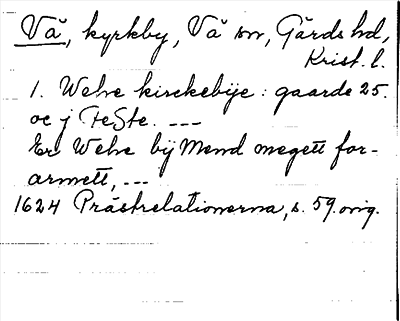 Vä, kyrkby, Vä sn, Gärds hd,
Krist. l.
1. Wehe kirckebije: gaarde 25.
oc j FeSte. ---
Er Wehe bij Mend megett for-
armett, ---
1624 Prästrelationerna, s. 59. orig.